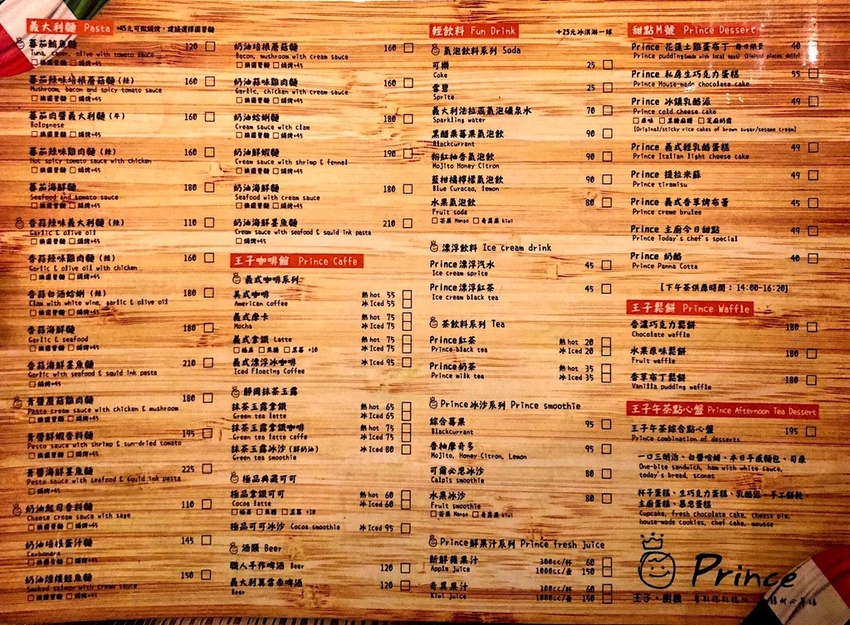 義大利麵 Pasta
蕃茄鮪魚麵 160
Tuna, caper, olive with tomato sauce
蕃茄辣味培根蘑菇麵(辣) 160
Mushroom, bacon and spicy tomato sauce
蕃茄肉醬義大利麵(牛) 160
Bolognese
蕃茄辣味雞肉麵(辣) 160
Hot spicy tomato sauce with chicken
蕃茄海鮮麵 180
Seafood and tomato sauce
香蒜辣味義大利麵(辣) 110
Garlic & olive oil
香蒜辣味雞肉麵(辣) 160
Garlic & olive oil with chicken
香蒜白酒蛤蜊(辣) 180
Clam with white wine, garlic & olive oil
香蒜海鮮麵 180
Garlic & seafood
香蒜海鮮墨魚麵 210
Garlic with seafood & squid ink pasta
青醬蘑菇雞肉麵 180
Pasto cream sauce with chicken & mushroom
青醬鮮蝦香料麵 195
Pesto sauce with shrimp & sun-dried tomato
青醬海鮮墨魚麵 225
Pasta sauce with seafood & squid ink pasta
奶油起司香料麵 110
Cheese cream sauce with sage
奶油培根蛋汁麵 145
Carbonara
奶油煙燻鮭魚麵 150
Smoked salmon with cream sauce
奶油培根蘑菇麵 160
Bacon, mushroom with cream sauce
奶油蒜味雞肉麵 160
Garlic, chicken with cream sauce
奶油蛤蜊麵 180
Cream sauce with clam
奶油鮮蝦麵 190
Cream sauce with shrimp & fennel
奶油海鮮麵 180
Seafood with cream sauce
奶油海鮮墨魚麵 210
Cream sauce with seafood & squid ink pasta
王子咖啡館 Prince Caffe
義式咖啡系列
美式咖啡 熱 hot 55
American coffee 冰 Iced 55
義式摩卡 熱 hot 75
Mocha 冰 Iced 75
義式拿鐵 Latte 熱 hot 75
冰 Iced 75
義式漂浮冰咖啡 冰 Iced 95
Iced Floating Coffee
靜岡抹茶玉露
抹茶玉露拿鐵 熱 hot 65
Green tea latte 冰 Iced 65
抹茶玉露拿鐵咖啡 熱 hot 75
Green tea latte caffe 冰 Iced 75
抹茶玉露冰沙(鮮奶油) 冰 Iced 80
Green tea smoothie
極品典藏可可
極品拿鐵可可 熱 hot 60
Cocoa latte 冰 Iced 60
極品可可冰沙 Cocoa smoothie 冰 Iced 95
酒類 Beer
職人手作啤酒 Beer 120
義大利莫雷帝啤酒 120
Beer
輕飲料 Fun Drink +25元冰淇淋一球
氣泡飲料系列 Soda
可樂 25
Coke
雪碧 25
Sprite
義大利法拉蕊氣泡礦泉水 70
Sparkling water
黑醋栗莓果氣泡飲 90
Blackcurrant
粉紅柚香氣泡飲 90
Mojito Honey Citron
藍柑橘檸檬氣泡飲 90
Blue Curacao, lemon
水果氣泡飲 80
Fruit soda
□芒果 Mango □奇異果 kiwi
漂浮飲料 Ice cream drink
Prince漂浮汽水 45
Ice cream sprite
Prince漂浮紅茶 45
Ice cream black tea
茶飲料系列 Tea
Prince紅茶 熱 hot 20
Prince black tea 冰 Iced 20
Prince奶茶 熱 hot 35
Prince milk tea 冰 Iced 35
Prince冰沙系列 Prince smoothie
綜合莓果 95
Blackcurrant
香柚摩奇多 95
Mojito, Honey Citron, Lemon
可爾必思冰沙 80
Calpis smoothie
水果冰沙 80
Fruit smoothie
□芒果 Mango □奇異果 kiwi
Prince鮮果汁系列 Prince fresh juice
新鮮蘋果汁 300cc/杯 60
Apple juice 1000cc/壺 150
奇異果汁 300cc/杯 60
Kiwi juice 1000cc/壺 150
甜點M號 Prince Dessert
Prince 花蓮土雞蛋布丁 每日限量 40
Prince 私房生巧克力蛋糕 55
Prince House-made chocolate cake
Prince 冰鎮乳酪派 49
Prince cold cheese cake
[Original/sticky rice cakes of brown sugar/sesame cream]
Prince 義式輕乳酪蛋糕 49
Prince Italian light cheese cake
Prince 提拉米蘇 49
Prince tiramisu
Prince 義式香草烤布蕾 45
Prince creme brulee
Prince 主廚今日甜點 49
Prince Today's chef's special
Prince 奶酪 40
Prince Panna Cotta
[下午茶供應時間:14:00-16:20]
王子鬆餅 Prince Waffle
香濃巧克力鬆餅 180
Chocolate waffle
水果原味鬆餅 180
Fruit waffle
香草布丁鬆餅 180
Vanilla pudding waffle
王子午茶點心盤 Prince Afternoon Tea Dessert
王子午茶綜合點心 195
Prince combination of desserts
一口三明治、白醬哈蛹、本日手感麵包、司康
One-bite sandwich, ham with white sauce,
today's bread, scones
杯子蛋糕、生巧克力蛋糕、乳酪派、手工餅乾、
主廚蛋糕、慕思蛋糕
Cupcake, fresh chocolate cake, cheese pie,
house-made cookies, chef cake, mousse
Prince